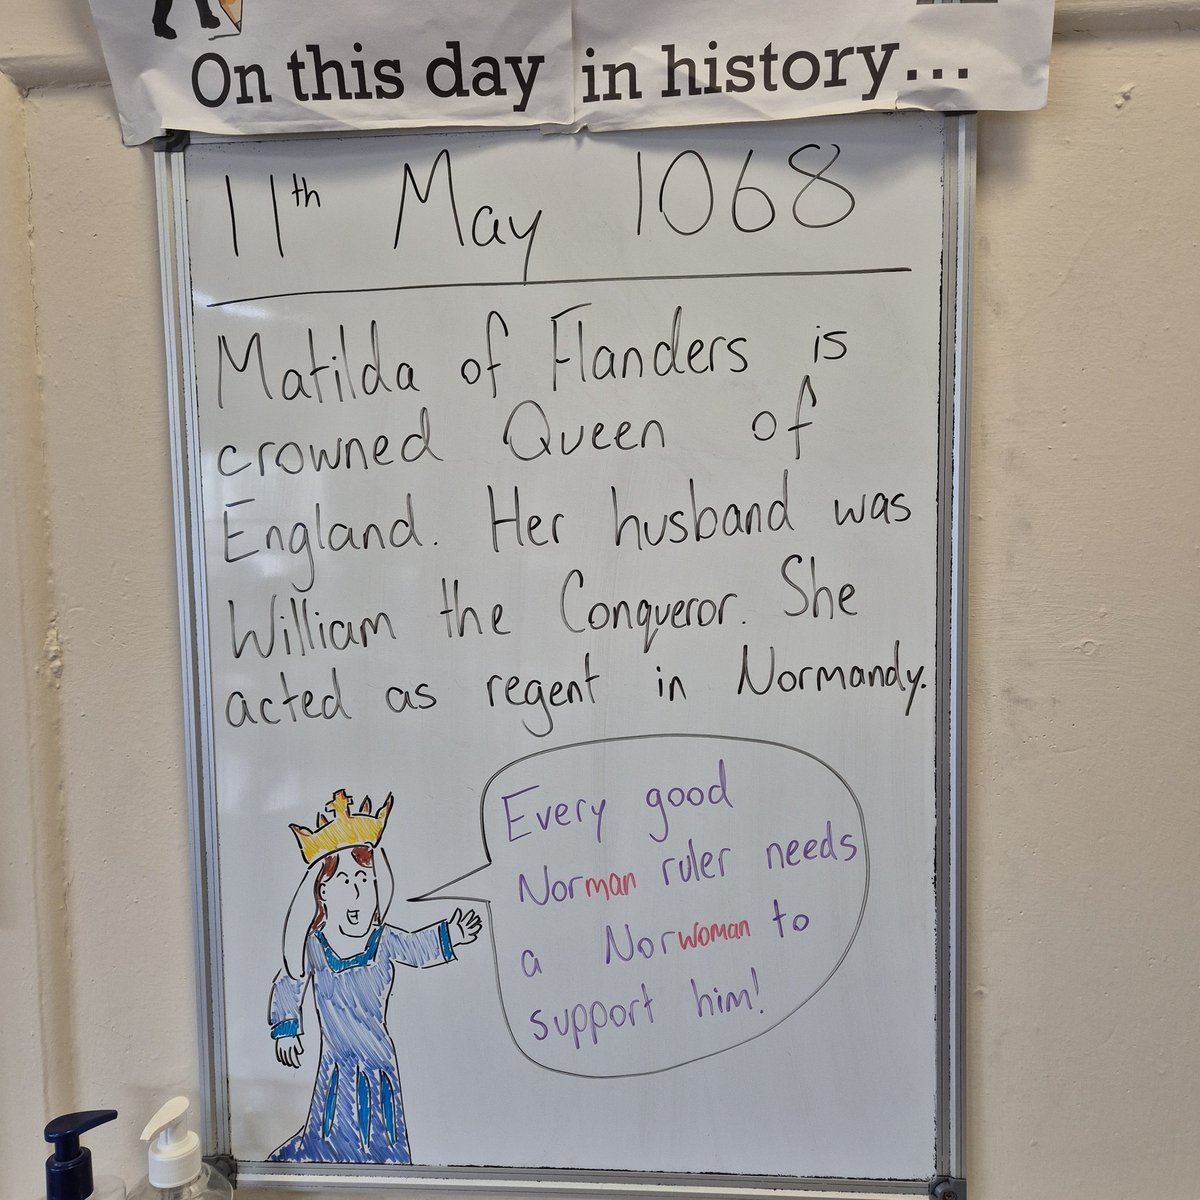 On this day in history...
11th May 1068
Matilda of Flanders is
crowned Queen of
England. Her husband was
William the Conqueror. She
acted as regent in Normandy.
Every good
Norman ruler needs
a Norwoman to
support him!